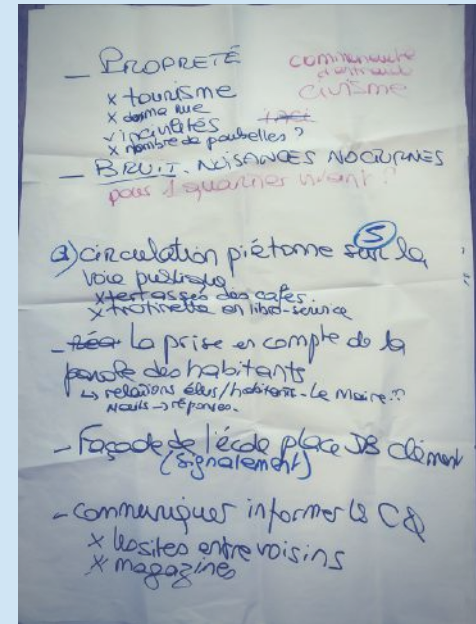 - PROPRETÉ
communauté
civisme
x tourisme
x ma rue
incivilités
x nombre de poubelles ?
- BRUIT. NUISANCES NOCTURNES
pour 1 quartier vivant ?
5
a) circulation piétonne sur la
voie publique
x terrasses des cafés.
x trotinette en libre-service
- La prise en compte de la
parole des habitants
↳ relations élus/habitants - Le Maire ??
Mails → réponses.
- Façade de l'école place JB Clément
(signalement)
- communiquer informer le CQ
x les sites entre voisins
x magazines